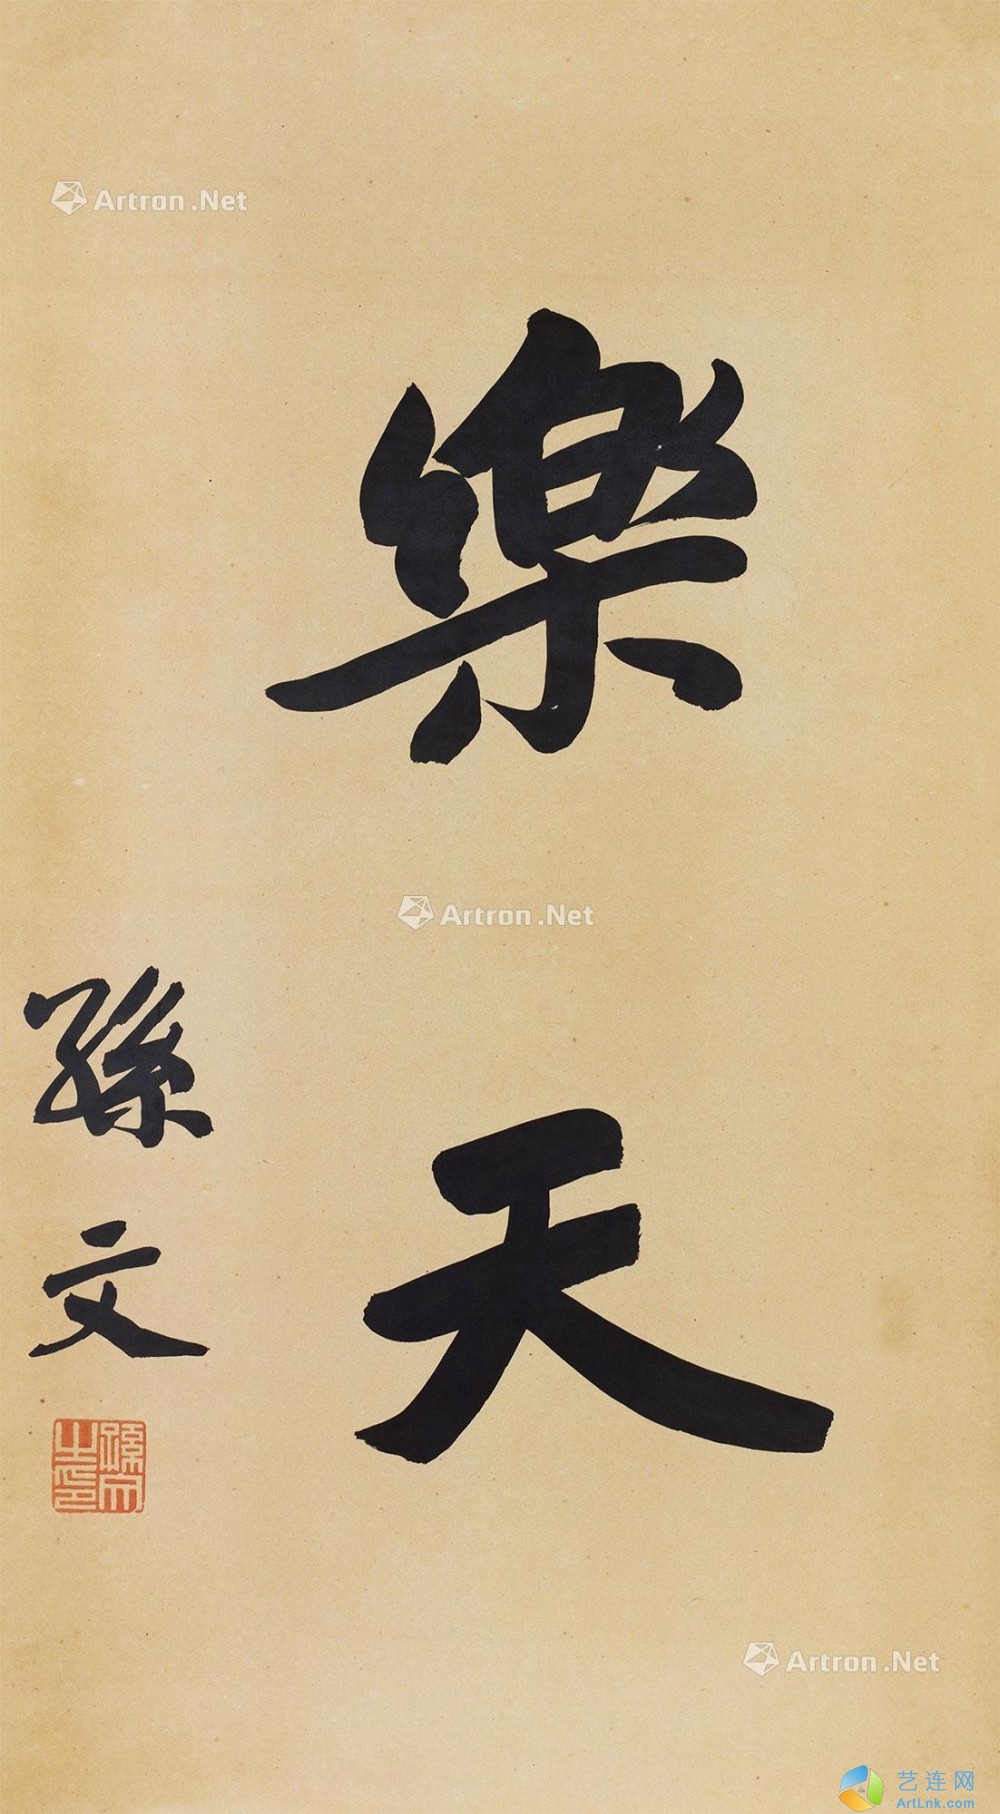 樂天
孫文
孫文之印
Artron.Net
Artron.Net
Artron.Net
艺连网
ArtLnk.com